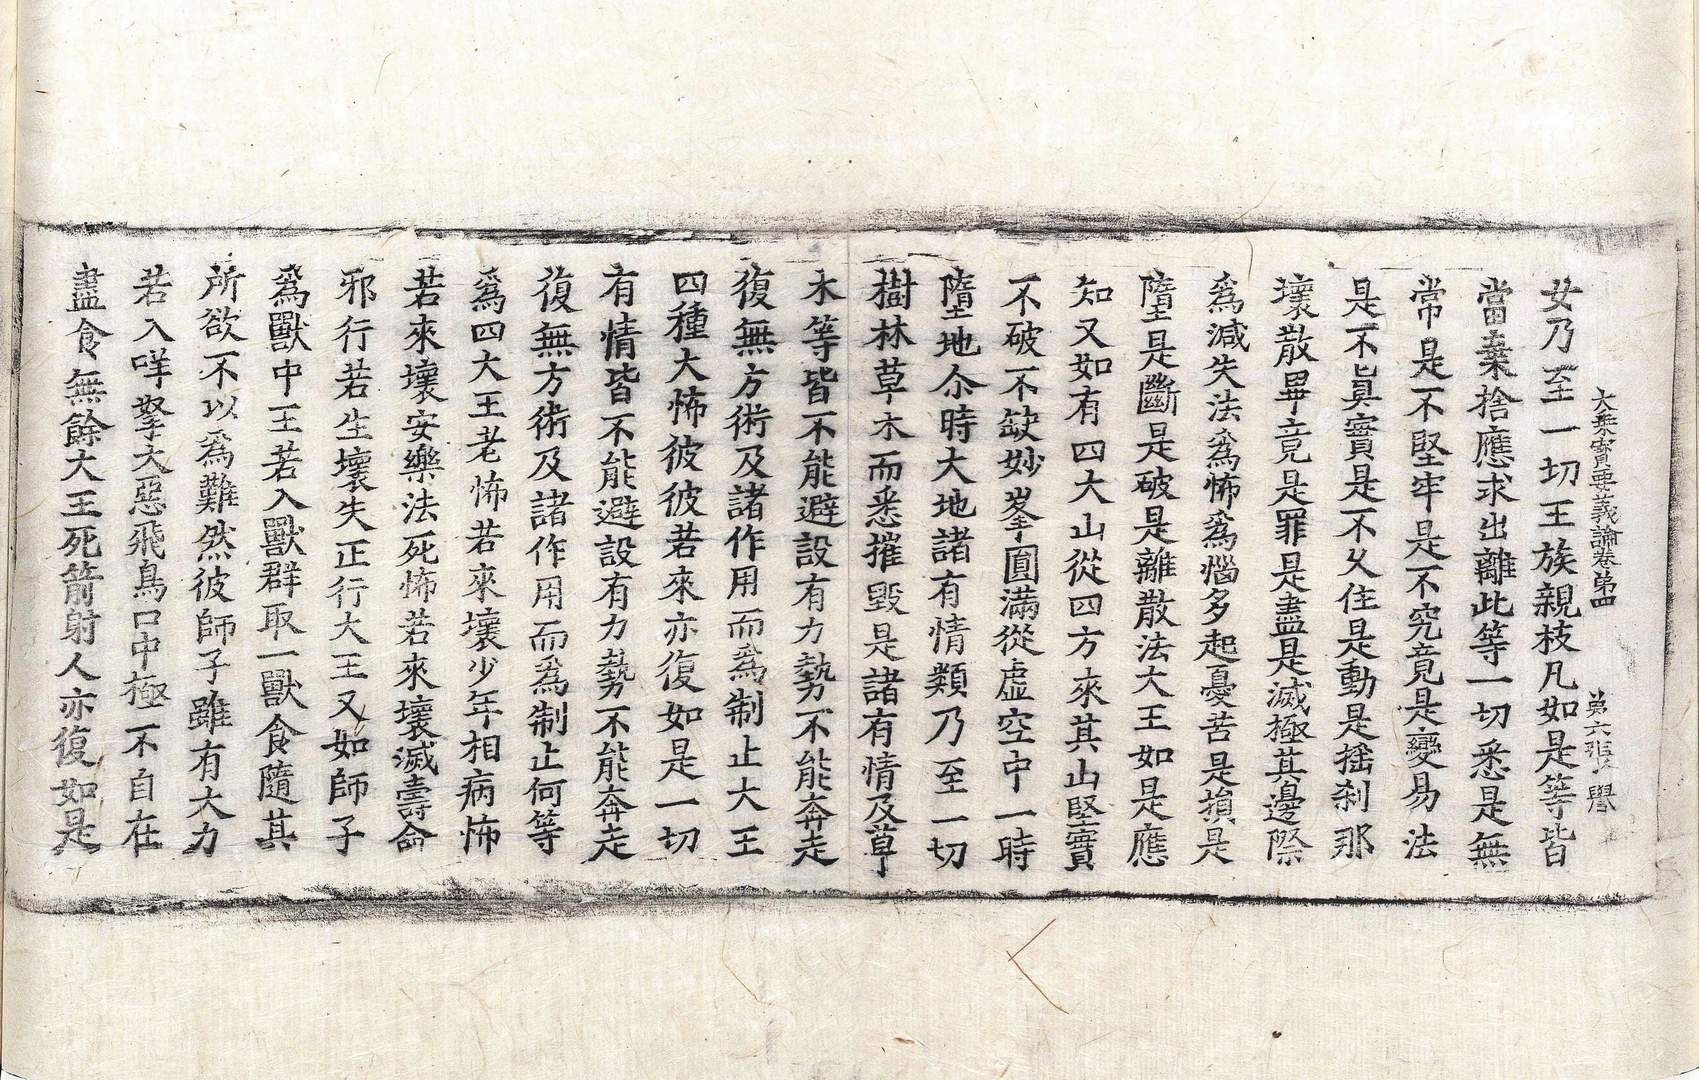 大乘寳要義論卷第四 第六張 譽
女乃至一切王族親枝凡如是等皆
當棄捨應求出離此等一切悉是無
常是不堅牢是不究竟是變易法
是不眞實是不久住是動是揺剎那
壞散畢竟是罪是盡是滅極其邊際
爲減失法爲怖爲惱多起憂苦是損是
墮是斷是破是離散法大王如是應
知又如有四大山從四方來其山堅實
不破不缺妙峯圓滿從虛空中一時
墮地尒時大地諸有情類乃至一切
樹林草木而悉摧毀是諸有情及草
木等皆不能避設有力勢不能奔走
復無方術及諸作用而爲制止大王
四種大怖彼彼若來亦復如是一切
有情皆不能避設有力勢不能奔走
復無方術及諸作用而爲制止何等
爲四大王老怖若來壞少年相病怖
若來壞安樂法死怖若來壞滅壽命
邪行若生壞失正行大王又如師子
爲獸中王若入獸群取一獸食隨其
所欲不以爲難然彼師子雖有大力
若入咩拏大惡飛鳥口中極不自在
盡食無餘大王死箭射人亦復如是